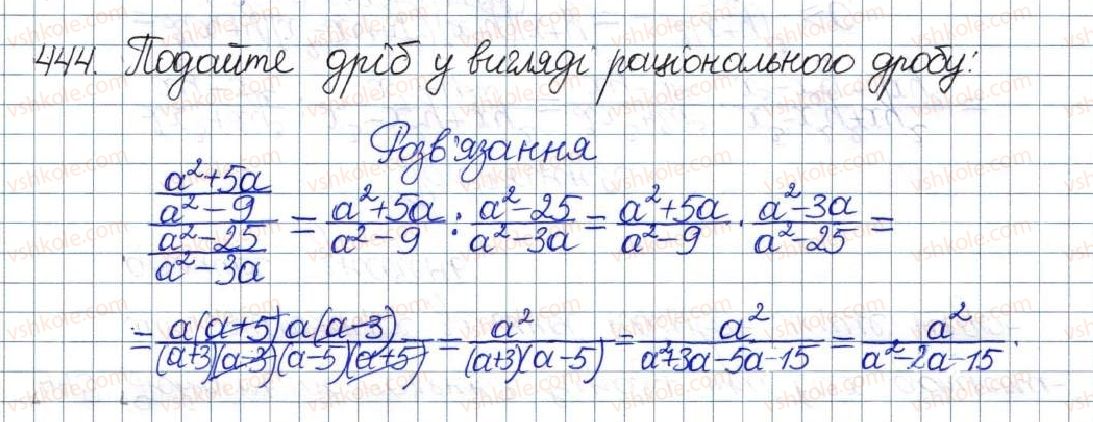 444. Подайте дріб у вигляді раціонального дробу:
Розв'язання
\frac{\frac{a²+5a}{a²-9}}{\frac{a²-25}{a²-3a}} = \frac{a²+5a}{a²-9} : \frac{a²-25}{a²-3a} = \frac{a²+5a}{a²-9} · \frac{a²-3a}{a²-25} =
= \frac{a(a+5)a(a-3)}{(a+3)(a-3)(a-5)(a+5)} = \frac{a²}{(a+3)(a-5)} = \frac{a²}{a²+3a-5a-15} = \frac{a²}{a²-2a-15}.